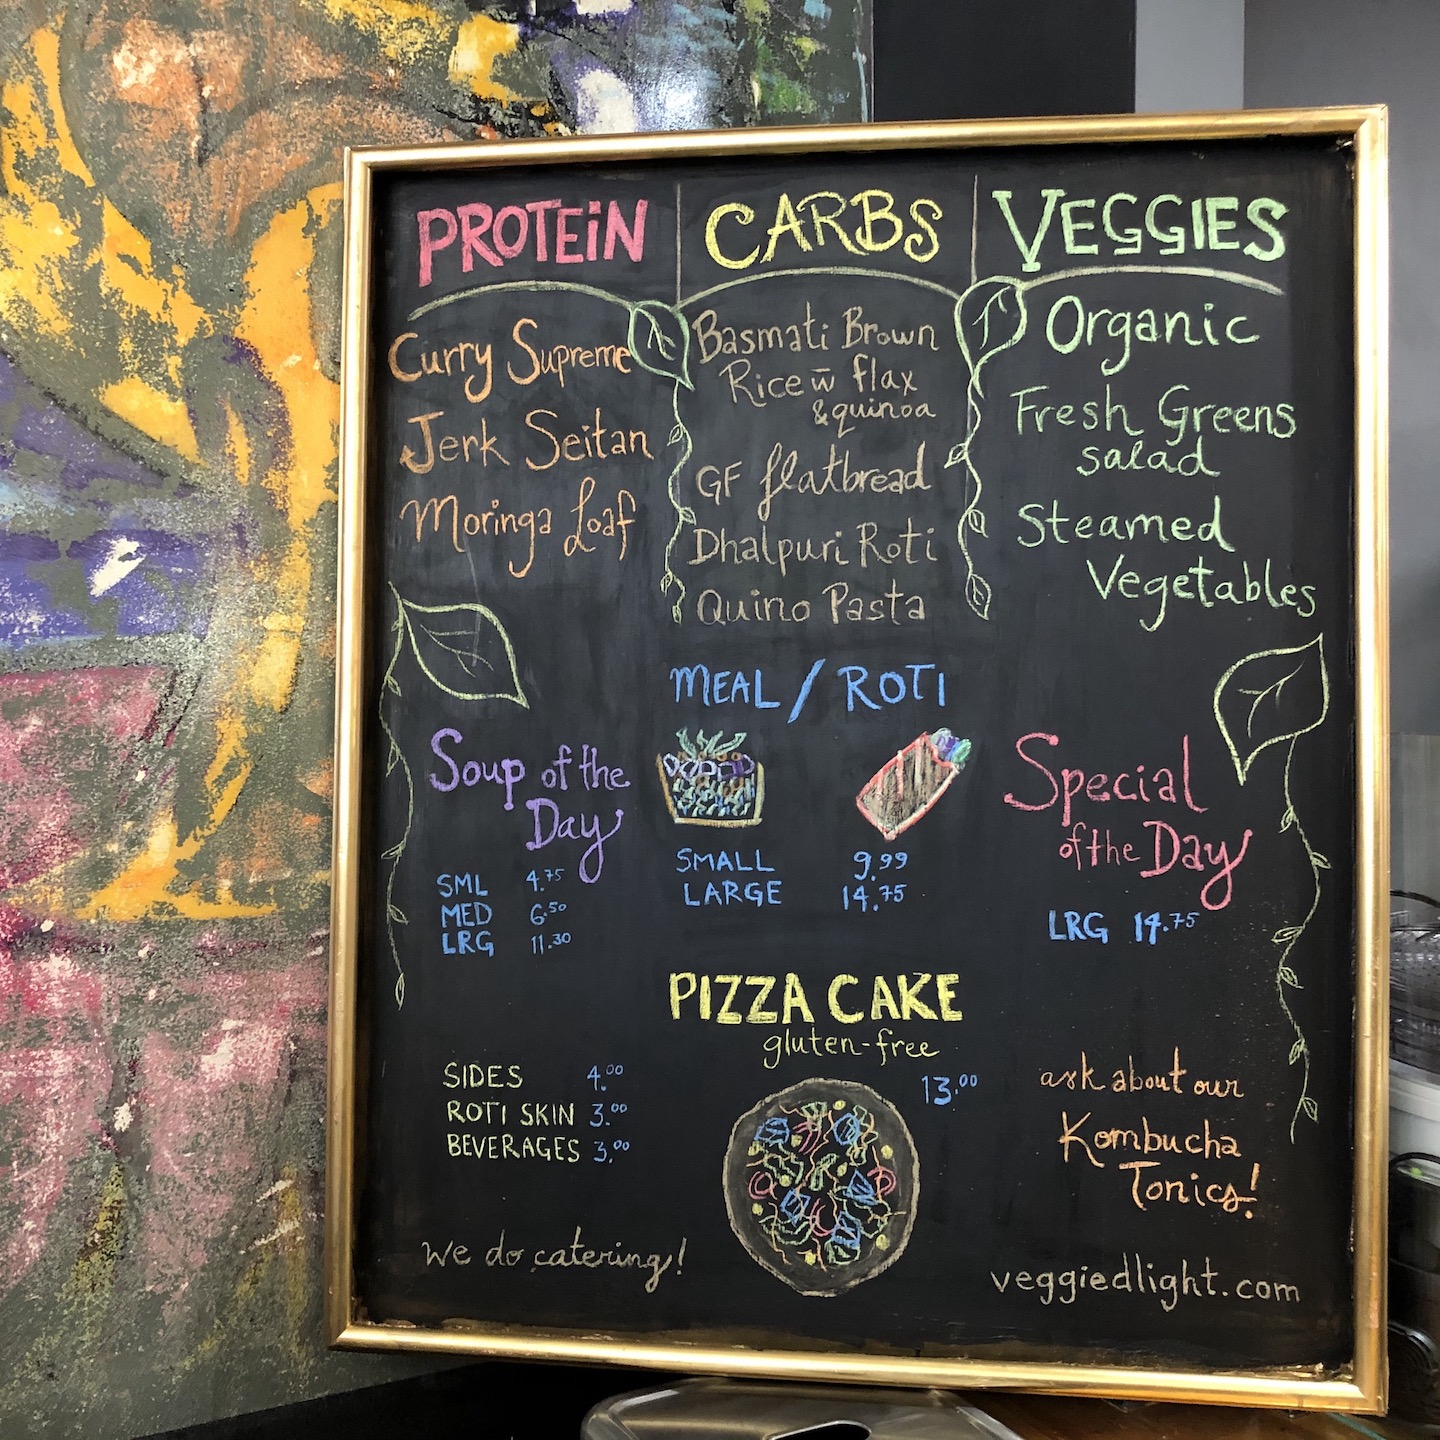 PROTEiN
Curry Supreme
Jerk Seitan
Moringa Loaf
CARBS
Basmati Brown
Rice w̄ flax
& quinoa
GF flatbread
Dhalpuri Roti
Quino Pasta
VEGGIES
Organic
Fresh Greens
salad
Steamed
Vegetables
MEAL / ROTI
SMALL 9.99
LARGE 14.75
Soup of the
Day
SML 4.75
MED 6.50
LRG 11.30
Special
of the Day
LRG 14.75
PIZZA CAKE
gluten-free
13.00
SIDES 4.00
ROTI SKIN 3.00
BEVERAGES 3.00
We do catering!
ask about our
Kombucha
Tonics!
veggiedlight.com